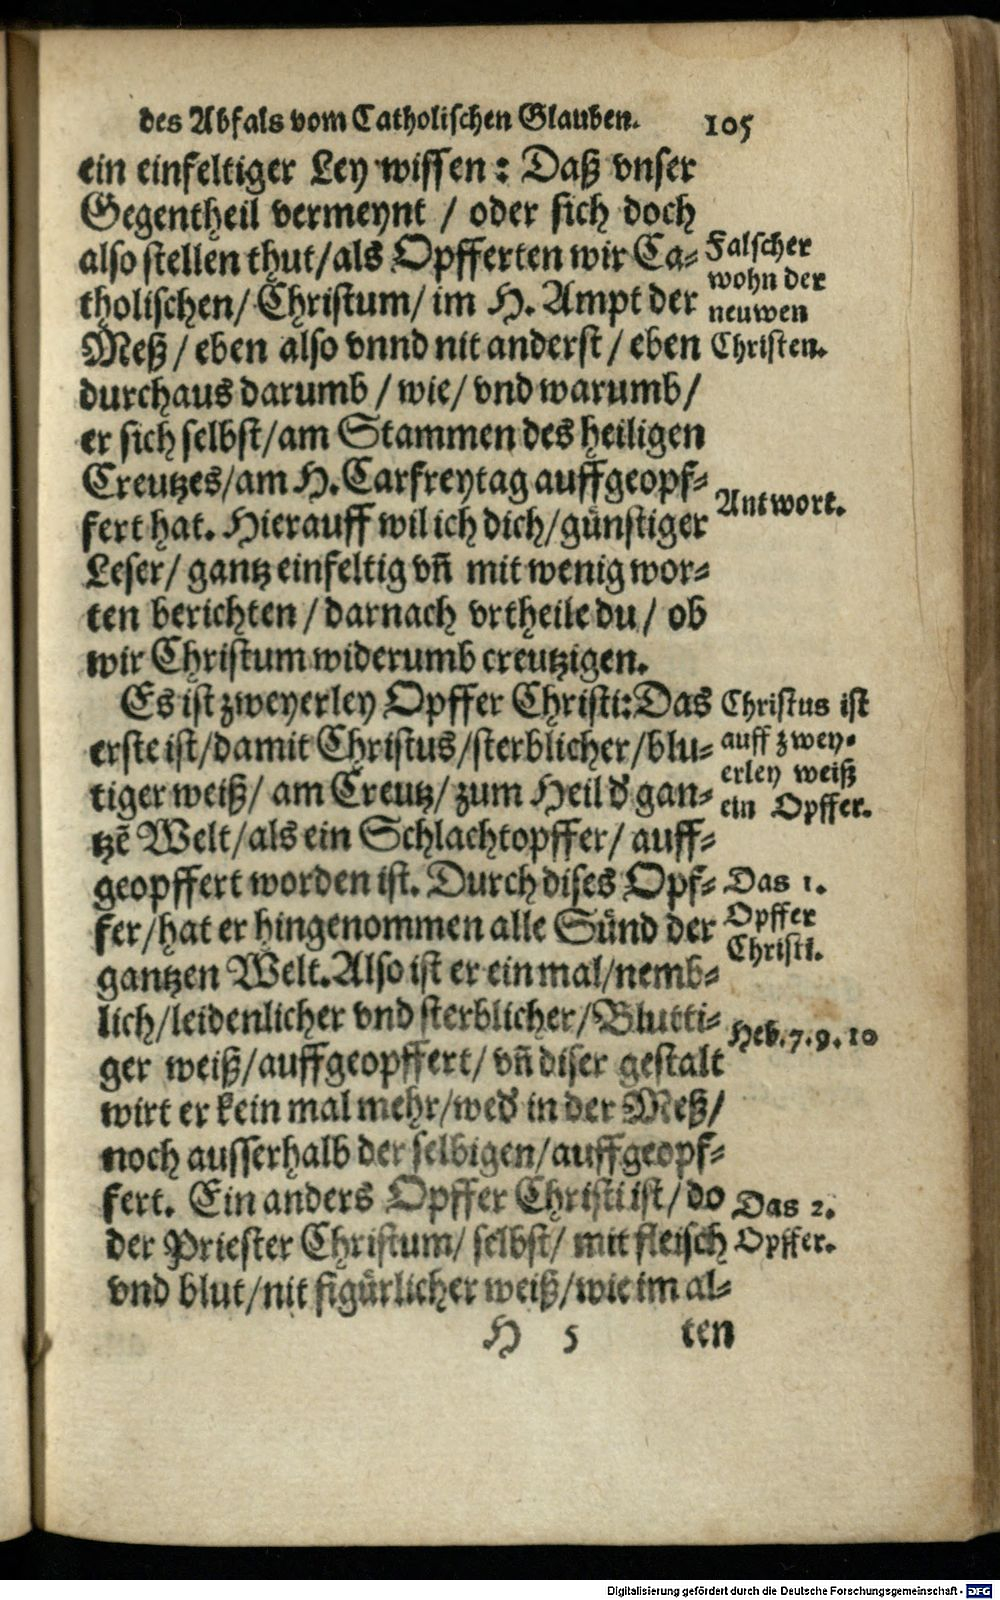 des Abfals vom Catholischen Glauben. 105
ein einfeltiger Ley wissen: Daß vnser
Gegentheil vermeynt / oder sich doch
also stellen thut/als Opfferten wir Ca-
tholischen/ Christum/ im H. Ampt der
Meß/ eben also vnnd nit anderst/ eben
durchaus darumb / wie/ vnd warumb/
er sich selbst/am Stammen des heiligen
Creutzes/am H. Carfreytag auffgeopf-
fert hat. Hierauff wil ich dich/günstiger
Leser/ gantz einfeltig vñ mit wenig wor-
ten berichten / darnach vrtheile du/ ob
wir Christum widerumb creutzigen.
Es ist zweyerley Opffer Christi: Das
erste ist/damit Christus/sterblicher/blu-
tiger weiß/ am Creutz/ zum Heil d' gan-
tzẽ Welt/als ein Schlachtopffer/ auff-
geopffert worden ist. Durch dises Opf-
fer/hat er hingenommen alle Sünd der
gantzen Welt. Also ist er ein mal/nemb-
lich/leidenlicher vnd sterblicher/Blutti-
ger weiß/auffgeopffert/ vñ diser gestalt
wirt er kein mal mehr/wed' in der Meß/
noch ausserhalb der selbigen/auffgeopf-
fert. Ein anders Opffer Christi ist/ do
der Priester Christum/ selbst/ mit fleisch
vnd blut/nit figürlicher weiß/wie im al-
H 5 ten
Falscher
wohn der
neuwen
Christen.
Antwort.
Christus ist
auff zwey-
erley weiß
ein Opffer.
Das 1.
Opffer
Christi.
Heb. 7. 9. 10
Das 2.
Opffer.
Digitalisierung gefördert durch die Deutsche Forschungsgemeinschaft - DFG